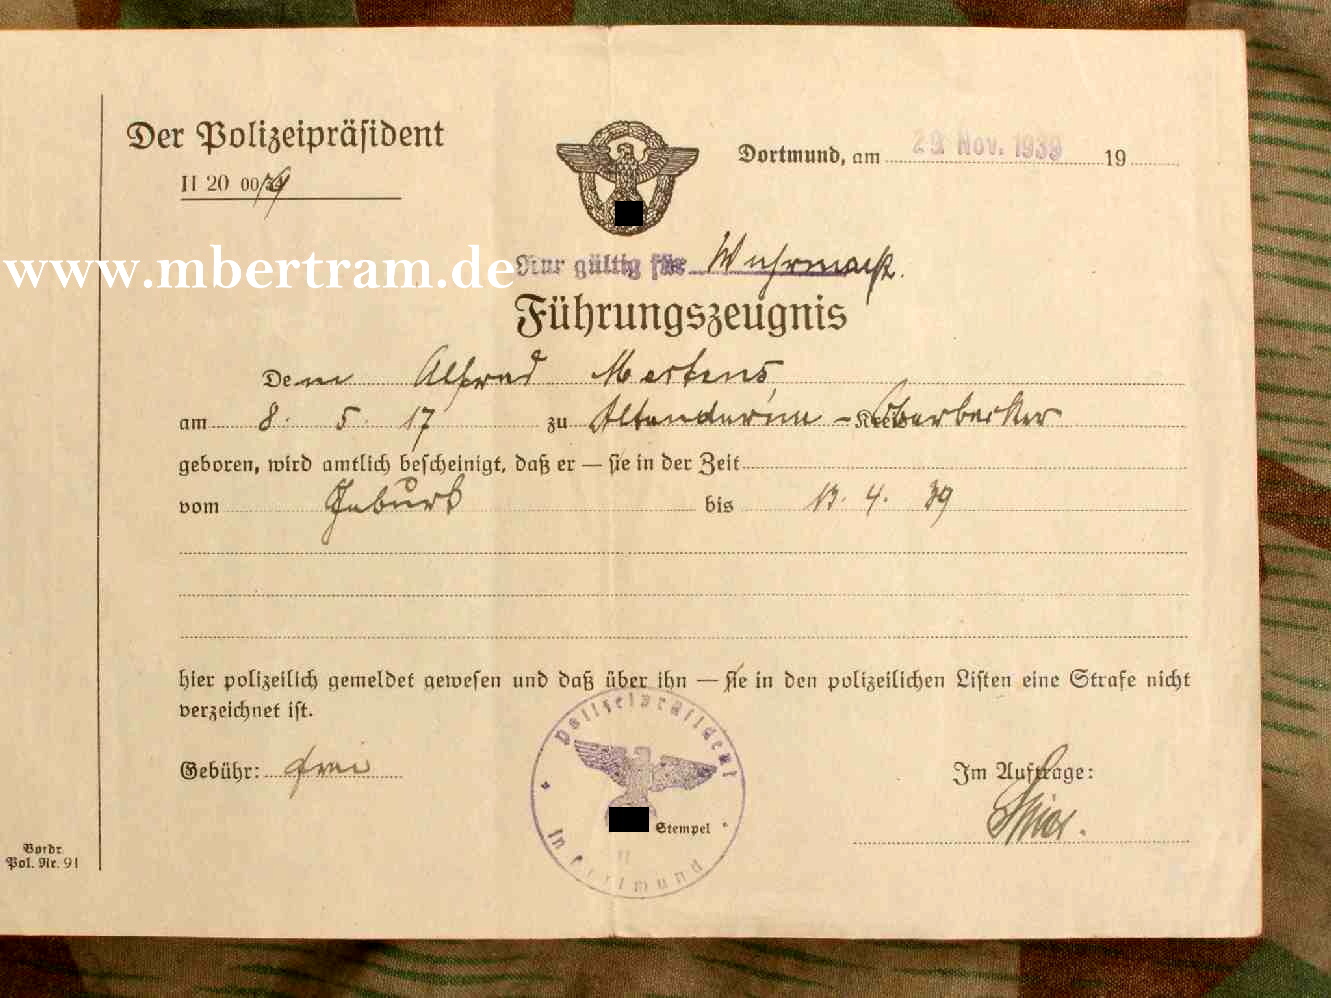 Der Polizeipräsident
II 20 00/39
Dortmund, am 29. Nov. 1939 19
www.mbertram.de
Nur gültig für Wehrmacht.
Führungszeugnis
Dem Alfred Mertens
am 8. 5. 17 zu Kreis
geboren, wird amtlich bescheinigt, daß er — sie in der Zeit
vom Geburt bis 13. 4. 39
hier polizeilich gemeldet gewesen und daß über ihn — sie in den polizeilichen Listen eine Strafe nicht
verzeichnet ist.
Gebühr: frei
Im Auftrage:
Polizeipräsident
Stempel
in Dortmund
Vordr.
Pol. Nr. 91